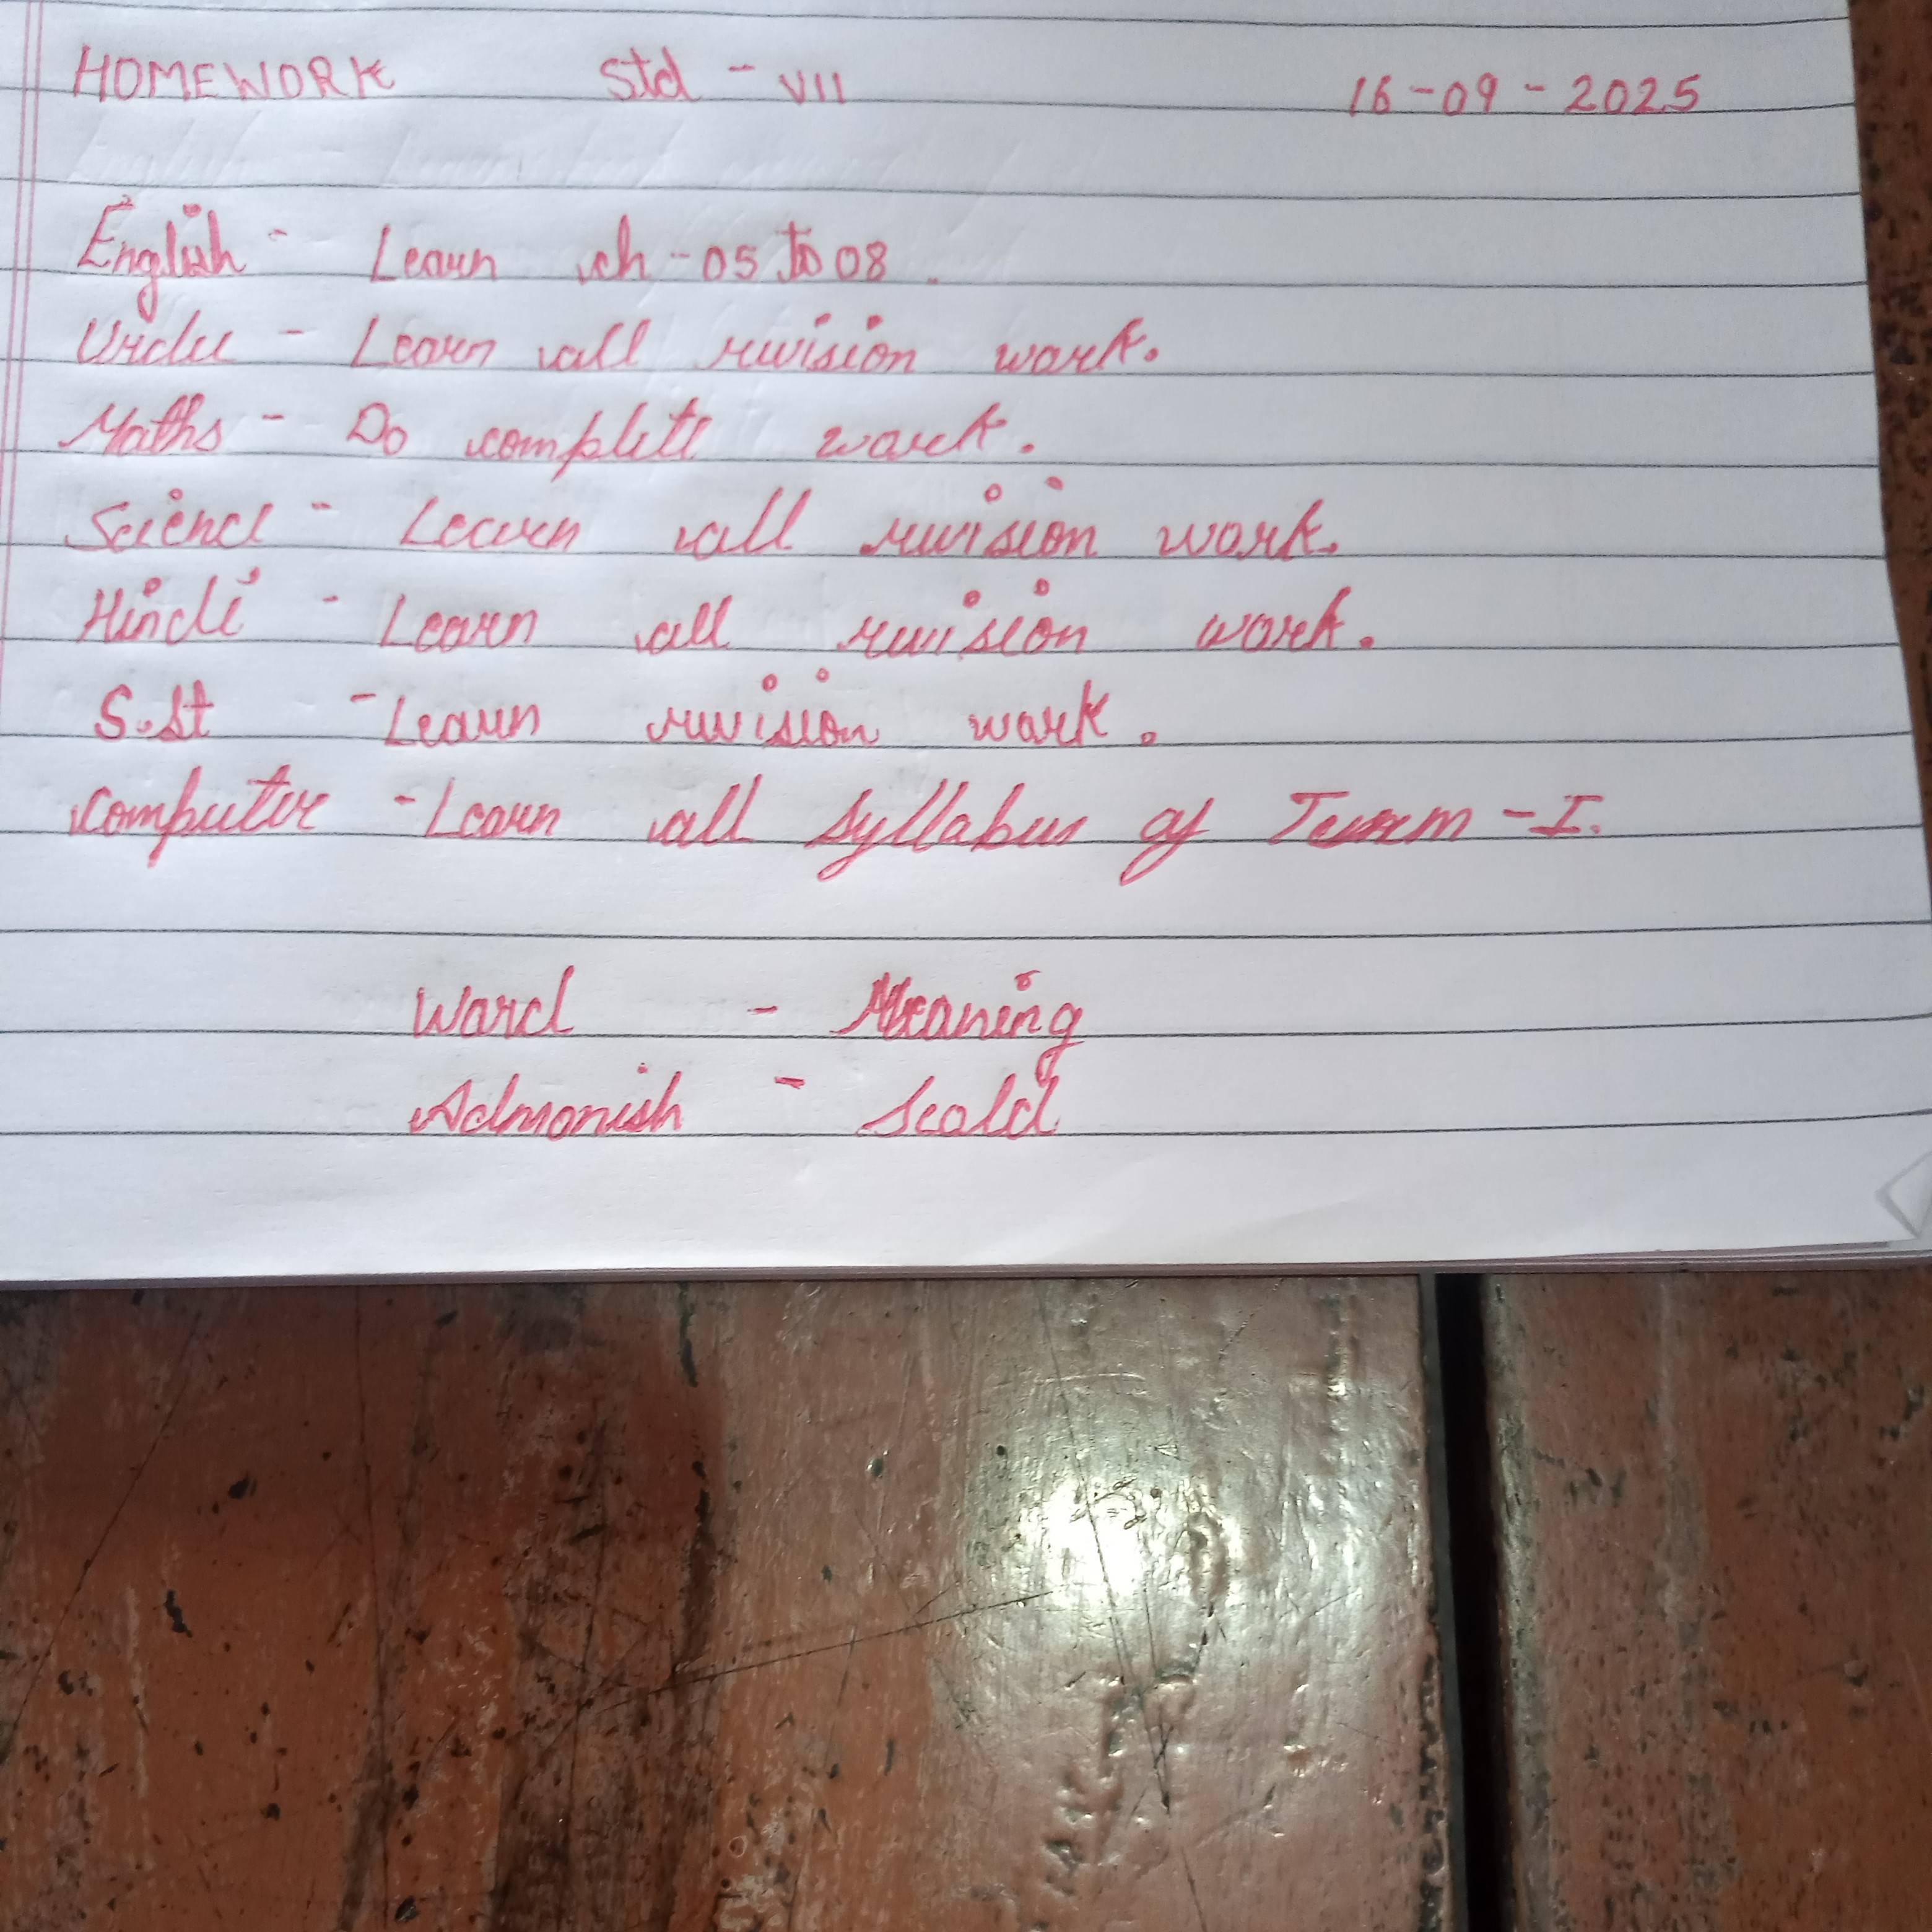 HOMEWORK Std - VII 16-09-2025
English - Learn ch-05 to 08.
Urdu - Learn all revision work.
Maths - Do complete work.
Science - Learn all revision work.
Hindi - Learn all revision work.
S.st - Learn revision work.
Computer - Learn all syllabus of Term - I.
Word - Meaning
Admonish - Scold